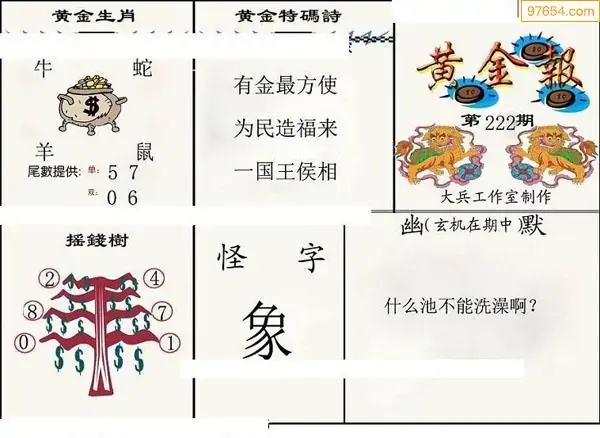 97654.com
黄金生肖
牛 蛇
$
羊 鼠
尾數提供: 单: 5 7
双: 0 6
黄金特碼詩
有金最方使
为民造福来
一国王侯相
黄金報
第222期
大兵工作室制作
摇錢樹
2 4
8 7
0 1
怪 字
象
幽(玄机在期中)默
什么池不能洗澡啊?